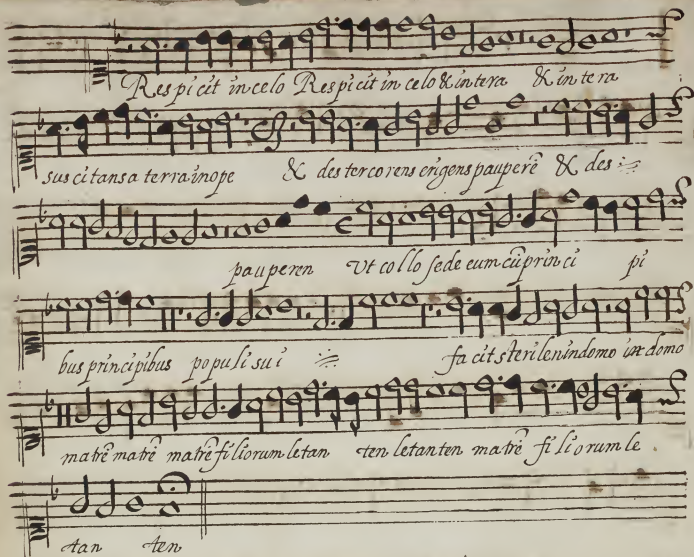 Respicit in celo Respicit in celo & in tera & in tera
suscitans a terra inope & des tercorens erigens pauperẽ & des
pauperen Vt collo sede eum cũ prin ci pi
bus principibus populi sui fa cit sterilen in domo in domo
matrẽ matrẽ matrẽ filiorum letan ten letanten matrẽ filiorum le
tan ten